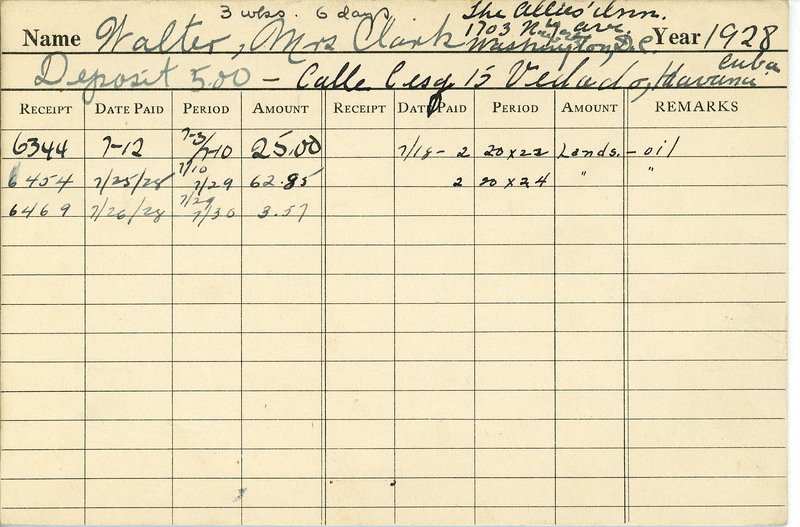 3 wks. 6 days. The Allies' Inn.
1703 N.Y. ave.
Name Walter, Mrs Clark Washington, D.C. Year 1928
Deposit 5.00 - Calle C esq 15 Vedado, Havana Cuba
RECEIPT DATE PAID PERIOD AMOUNT RECEIPT DATE PAID PERIOD AMOUNT REMARKS
6344 7-12 7-3/7-10 25.00 7/18 - 2 20 x 22 Lands. - oil
6454 7/25/28 7/10 7/29 62.85 2 20 x 24 " "
6469 7/26/28 7/29 7/30 3.57